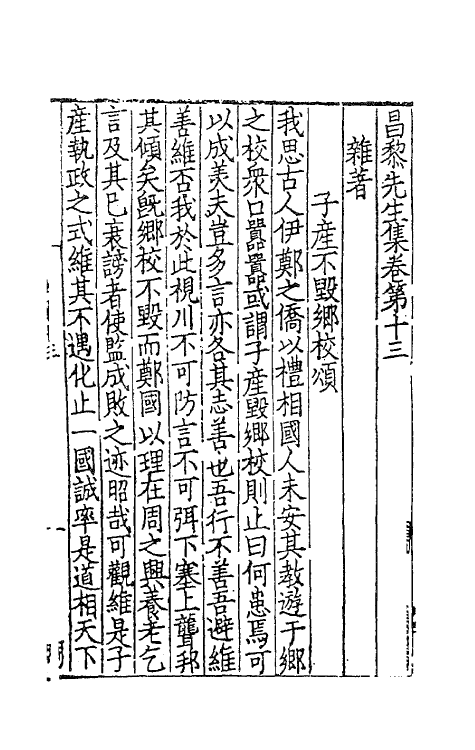 昌黎先生集卷第十三
雜著
子產不毀鄉校頌
我思古人伊鄭之僑以禮相國人未安其教遊于鄉
之校衆口囂囂或謂子產毀鄉校則止曰何患焉可
以成美夫豈多言亦各其志善也吾行不善吾避維
善維否我於此視川不可防言不可弭下塞上聾邦
其傾矣既鄉校不毀而鄭國以理在周之興養老乞
言及其已衰謗者使監成敗之迹昭哉可觀維是子
產執政之式維其不遇化止一國誠率是道相天下